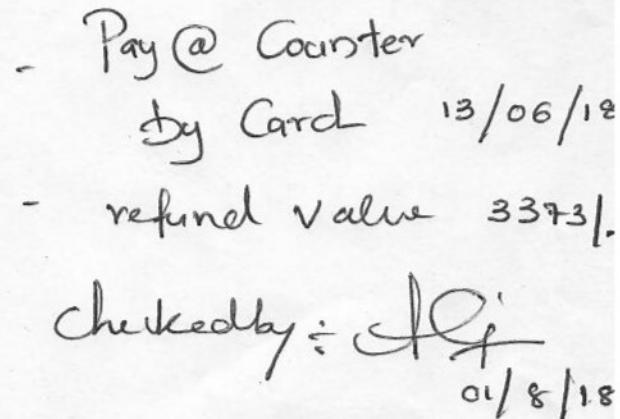 - Pay @ Counter
by Card 13/06/18
- refund value 3373/.
Checkedby :
01/8/18